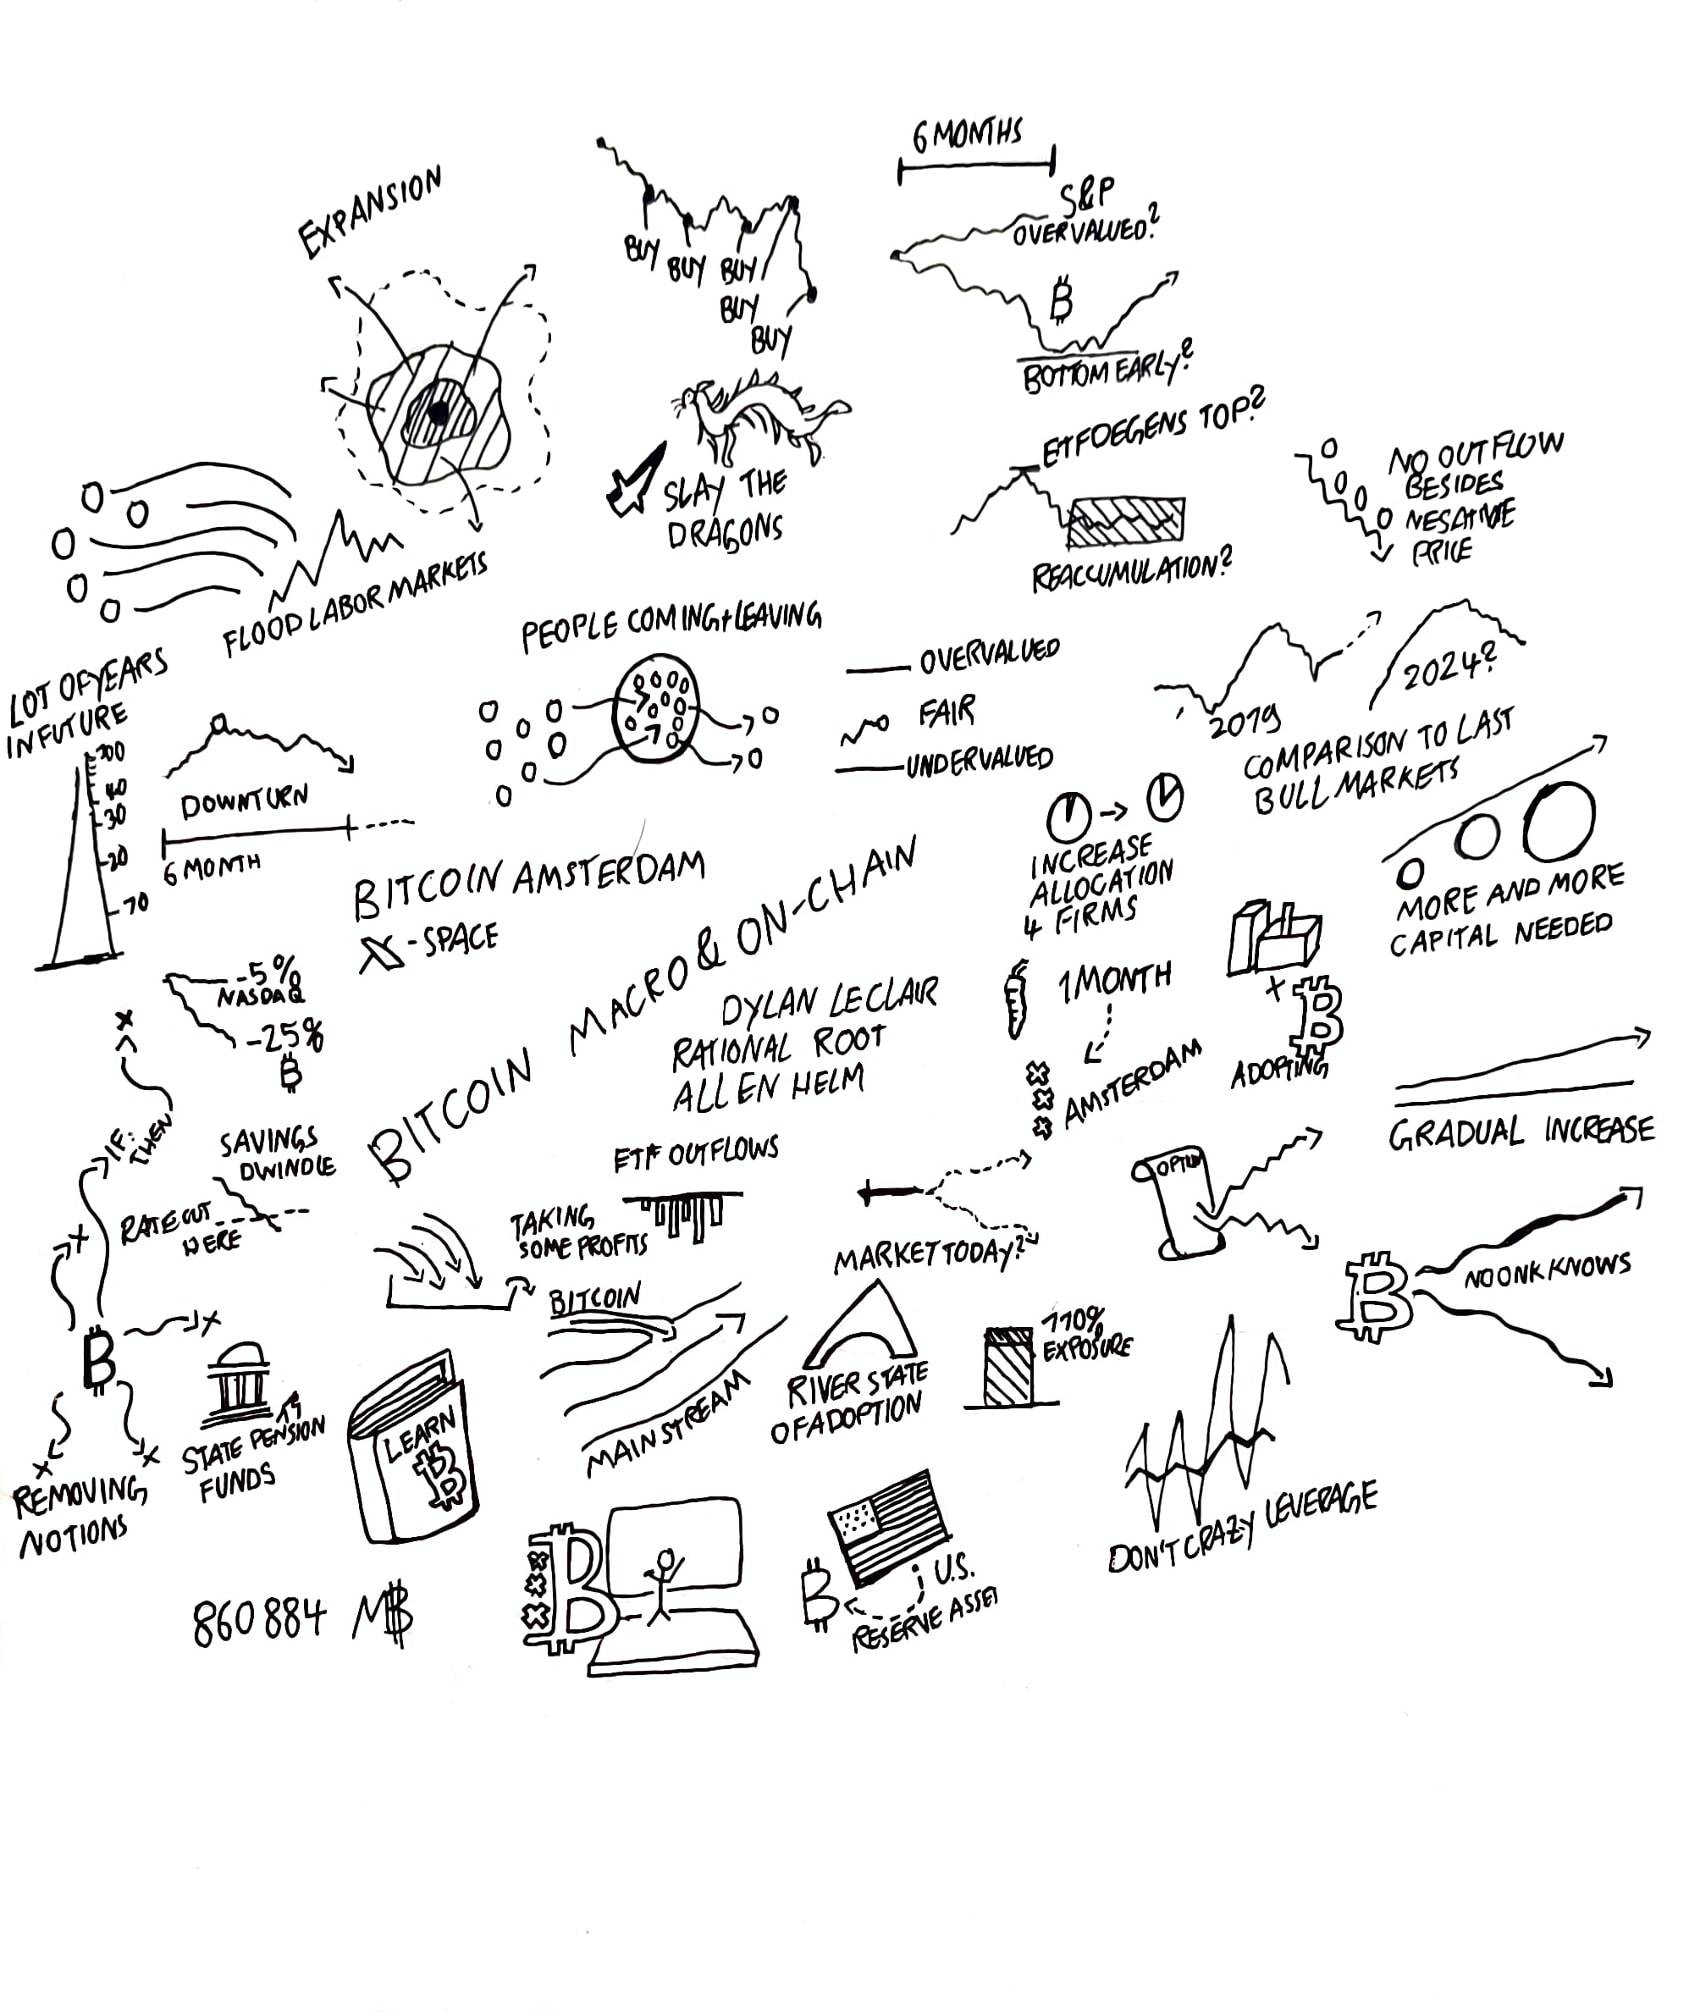 6 MONTHS
EXPANSION
S&P
OVERVALUED?
BUY
BUY
BUY
BUY
BUY
BOTTOM EARLY?
ETF DEGENS TOP?
SLAY THE
DRAGONS
REACCUMULATION?
NO OUTFLOW
BESIDES
NEGATIVE
PRICE
FLOOD LABOR MARKETS
PEOPLE COMING + LEAVING
OVERVALUED
FAIR
UNDERVALUED
2019
2024?
COMPARISON TO LAST
BULL MARKETS
LOT OF YEARS
IN FUTURE
100
40
30
20
10
DOWNTURN
6 MONTH
BITCOIN AMSTERDAM
X-SPACE
INCREASE
ALLOCATION
4 FIRMS
MORE AND MORE
CAPITAL NEEDED
-5%
NASDAQ
-25%
₿
BITCOIN MACRO & ON-CHAIN
DYLAN LECLAIR
RATIONAL ROOT
ALLEN HELM
1 MONTH
AMSTERDAM
ADOPTING
GRADUAL INCREASE
IF:
THEN
SAVINGS
DWINDLE
RATE CUT
HERE
ETF OUTFLOWS
TAKING
SOME PROFITS
MARKET TODAY?
NO ONK KNOWS
BITCOIN
MAINSTREAM
RIVER STATE
OF ADOPTION
110%
EXPOSURE
STATE PENSION
FUNDS
LEARN
₿
REMOVING
NOTIONS
DON'T CRAZY LEVERAGE
U.S.
RESERVE ASSET
860884